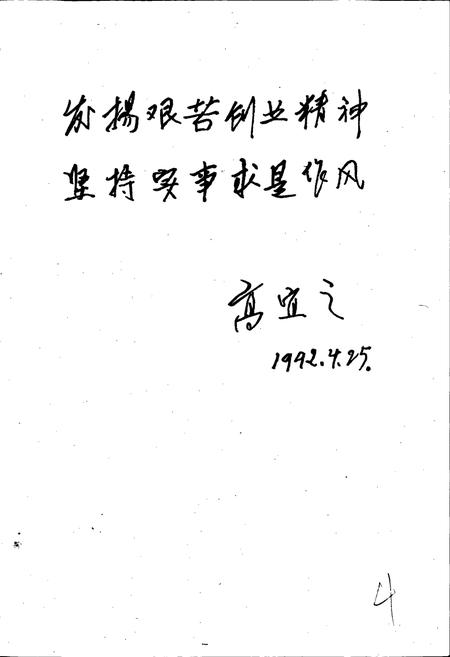 发揚艰苦创业精神
坚持实事求是作风
高宜之
1992.4.25.
4